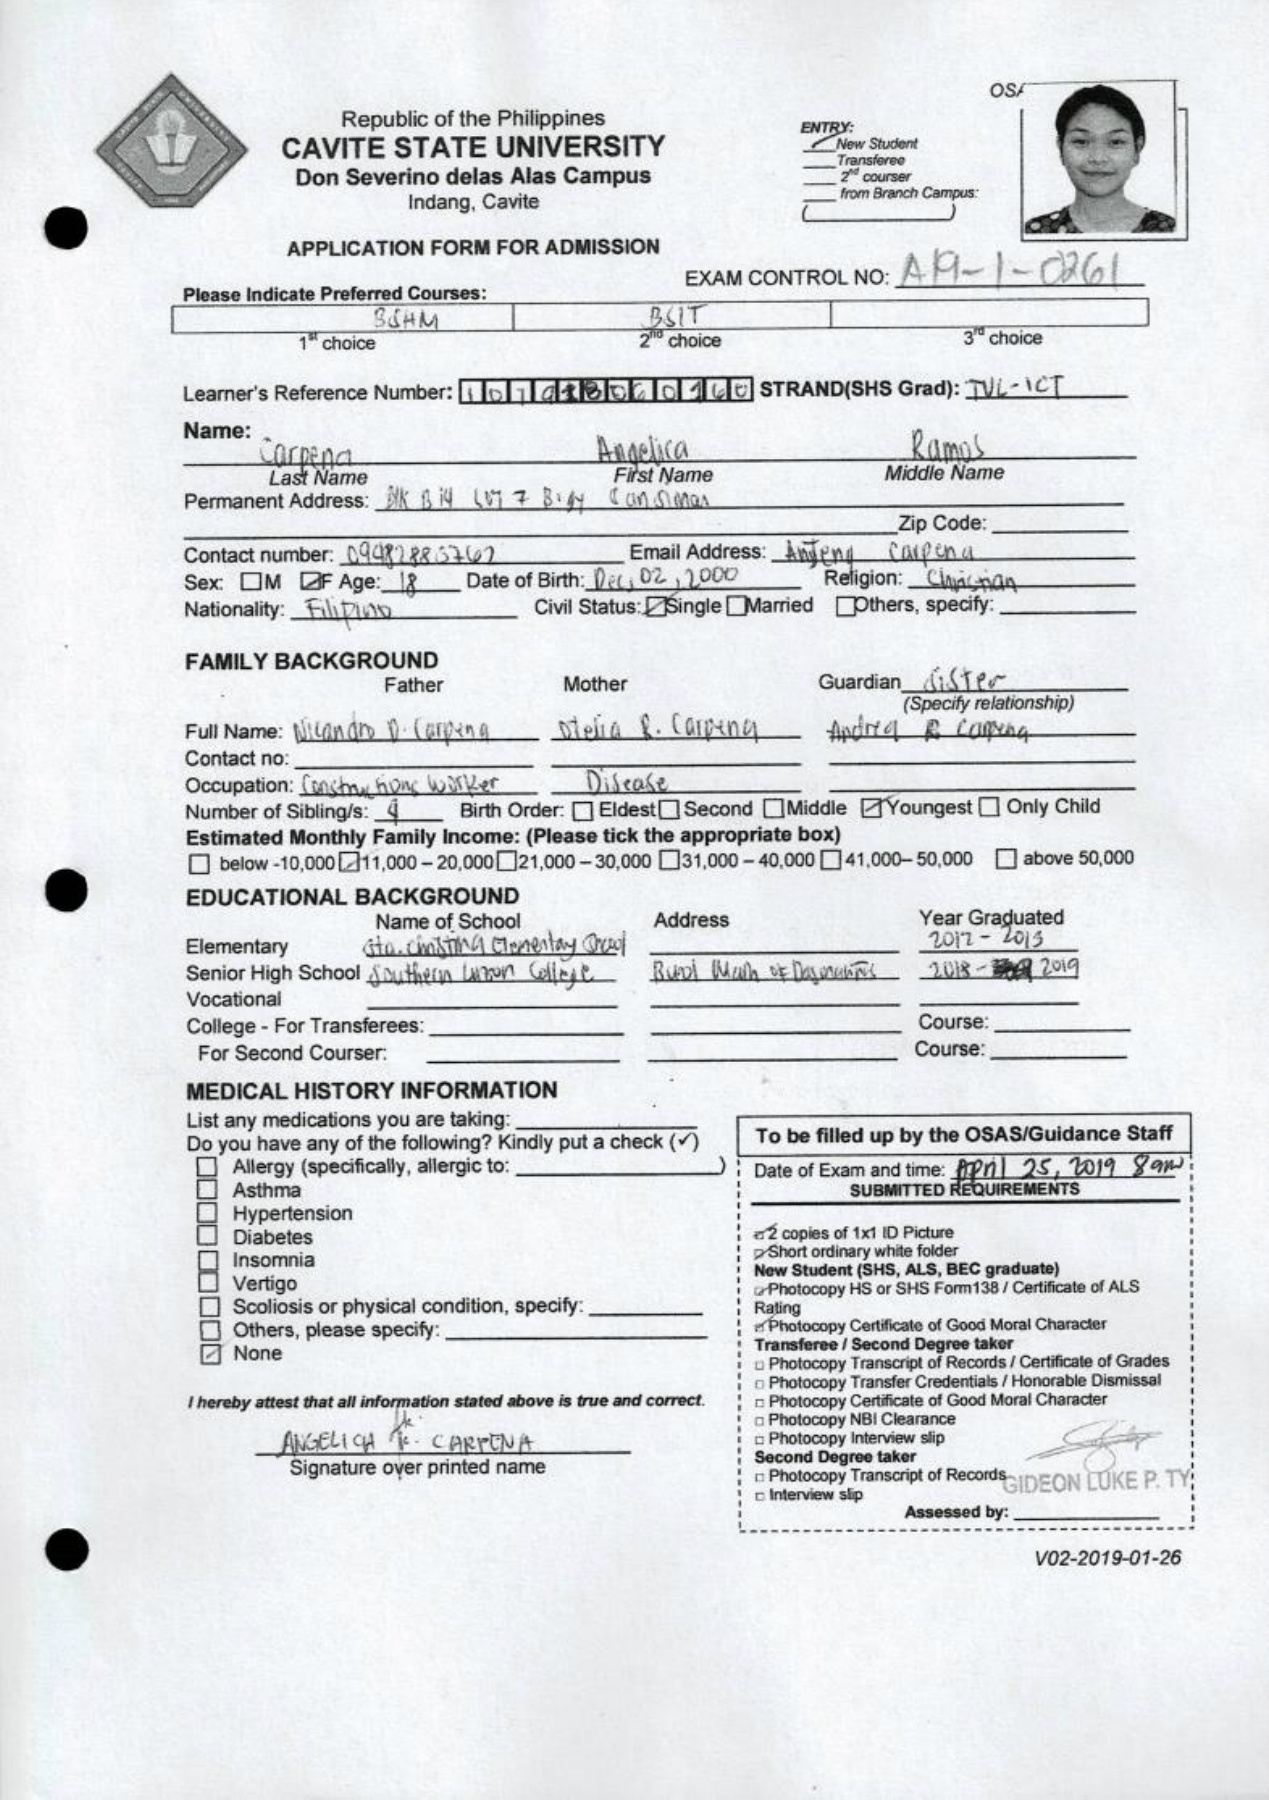 OSA
Republic of the Philippines
CAVITE STATE UNIVERSITY
Don Severino delas Alas Campus
Indang, Cavite
ENTRY:
New Student
Transferee
2nd courser
from Branch Campus:
APPLICATION FORM FOR ADMISSION
EXAM CONTROL NO: A19-1-0261
Please Indicate Preferred Courses:
BSHM BSIT
1st choice 2nd choice 3rd choice
Learner's Reference Number: STRAND(SHS Grad): TVL-ICT
Name:
Carpena Angelica Ramos
Last Name First Name Middle Name
Permanent Address: Blk B14 Lot 7 Brgy
Zip Code:
Contact number: Email Address: Anjeng Carpena
Sex: M F Age: 18 Date of Birth: Dec, 02, 2000 Religion: Christian
Nationality: Filipino Civil Status: Single Married Others, specify:
FAMILY BACKGROUND
Father Mother Guardian sister
(Specify relationship)
Full Name: Nicandro D. Carpena R. Carpena Andrea R Carpena
Contact no:
Occupation: Constructions Worker Disease
Number of Sibling/s: 4 Birth Order: Eldest Second Middle Youngest Only Child
Estimated Monthly Family Income: (Please tick the appropriate box)
below -10,000 11,000 – 20,000 21,000 – 30,000 31,000 – 40,000 41,000– 50,000 above 50,000
EDUCATIONAL BACKGROUND
Name of School Address Year Graduated
Elementary Sta. Christina Elementary School 2012 - 2013
Senior High School Southern Luzon College 2018 - 2019
Vocational
College - For Transferees: Course:
For Second Courser: Course:
MEDICAL HISTORY INFORMATION
List any medications you are taking:
Do you have any of the following? Kindly put a check (✓)
Allergy (specifically, allergic to: )
Asthma
Hypertension
Diabetes
Insomnia
Vertigo
Scoliosis or physical condition, specify:
Others, please specify:
None
I hereby attest that all information stated above is true and correct.
ANGELICA R. CARPENA
Signature over printed name
To be filled up by the OSAS/Guidance Staff
Date of Exam and time: April 25, 2019 8am
SUBMITTED REQUIREMENTS
2 copies of 1x1 ID Picture
Short ordinary white folder
New Student (SHS, ALS, BEC graduate)
Photocopy HS or SHS Form138 / Certificate of ALS
Rating
Photocopy Certificate of Good Moral Character
Transferee / Second Degree taker
Photocopy Transcript of Records / Certificate of Grades
Photocopy Transfer Credentials / Honorable Dismissal
Photocopy Certificate of Good Moral Character
Photocopy NBI Clearance
Photocopy Interview slip
Second Degree taker
Photocopy Transcript of Records
GIDEON LUKE P. TY
Interview slip
Assessed by:
V02-2019-01-26